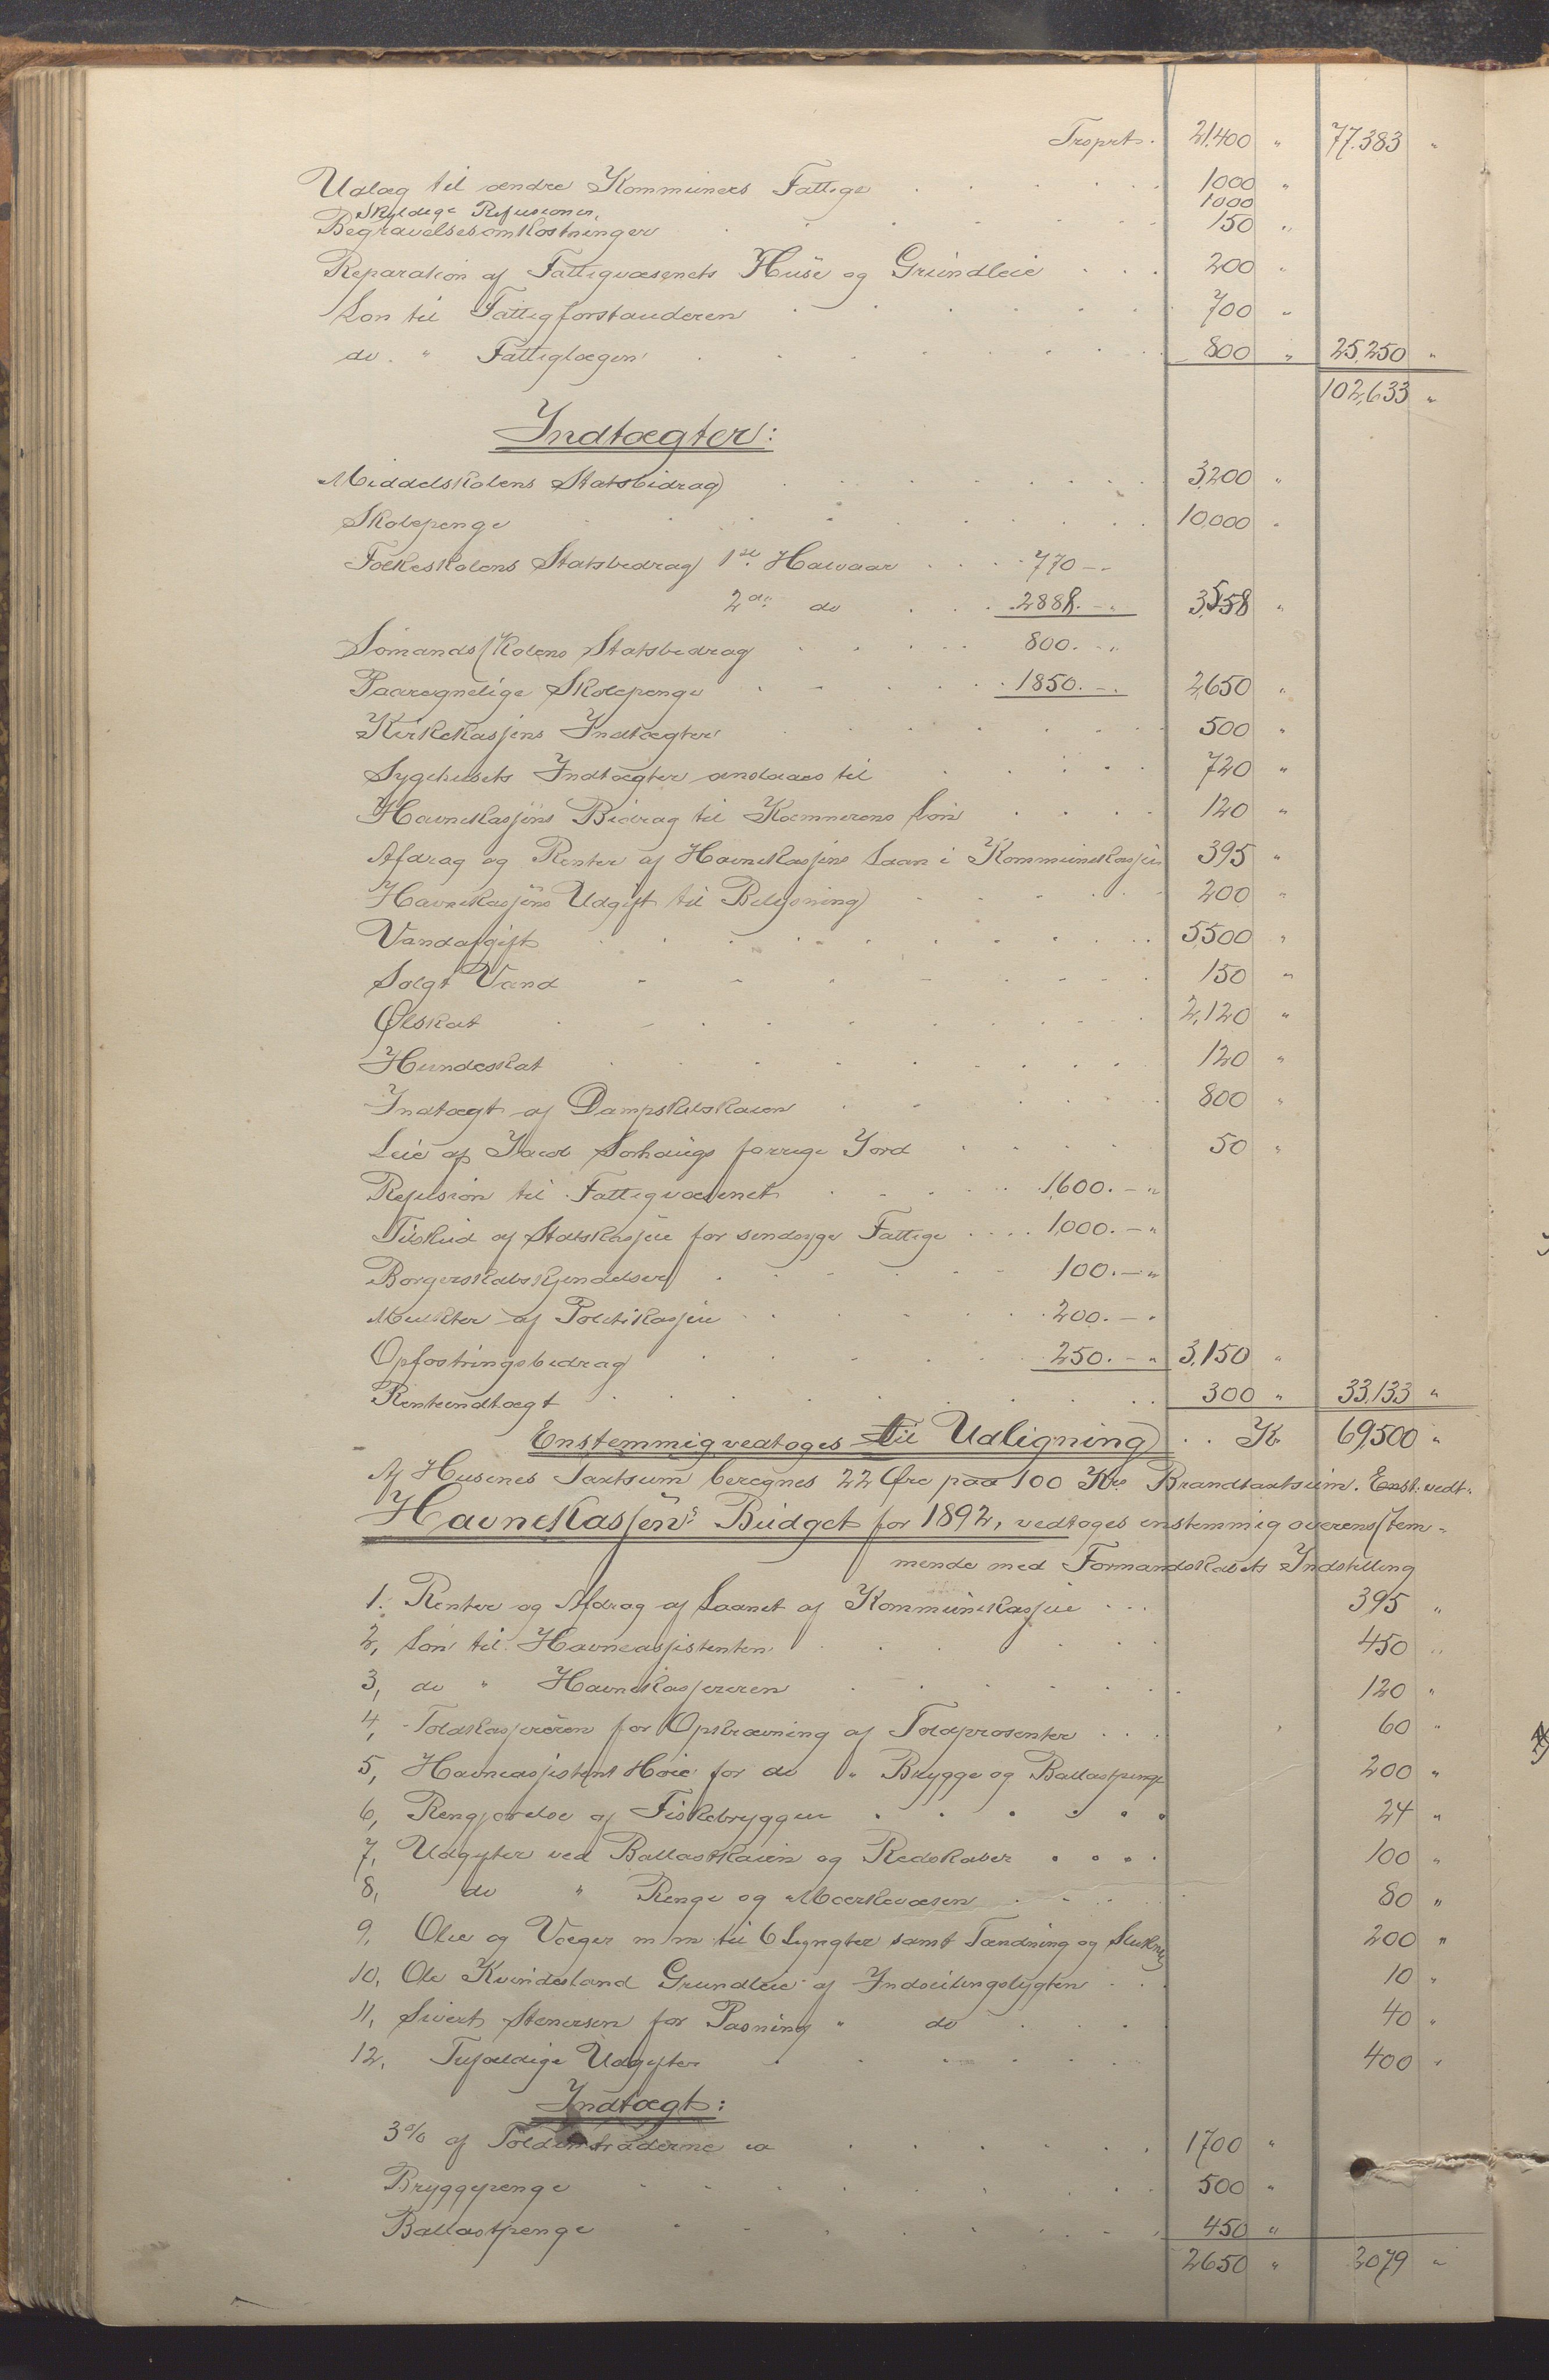 Trsprt. 21.400 " 77.383 "
Udlæg til andre Kommuners Fattige . . . . . 1000 "
Skyldige Refusioner. 1000
Begravelsesomkostninger . . . . . 150 "
Reparation af Fattigvæsenets Huse og Grundleie . . . 200 "
Løn til Fattigforstanderen . . . . . 700 "
do. " Fattiglægen . . . . . 800 " 25,250 "
102,633 "
Indtægter:
Middelskolens Statsbidrag . . . . . 3,200 "
Skolepenge . . . . . 10,000 "
Folkeskolens Statsbidrag 1ste Halvaar . . . . 770 - "
2det do . . . 2888. - " 3,558 "
Sømandsskolens Statsbidrag . . . . . 800. - "
Paaregnelige Skolepenge . . . . . 1850. - " 2,650 "
Kirkekassens Indtægter . . . . . 500 "
Sygehusets Indtægter anslaaes til . . . . . 720 "
Havnekassens Bidrag til Kæmnerens Løn . . . . 120 "
Afdrag og Renter af Havnekassens Laan i Kommunekassen 395 "
Havnekassens Udgift til Belysning . . . . . 200 "
Vandafgift . . . . . 5,500 "
Solgt Vand . . . . . 150 "
Ølskat . . . . . 2,120 "
Hundeskat . . . . . 120 "
Indtægt af Dampskibskaien . . . . . 800 "
Leie af Jacob Sørhaugs forrige Jord . . . . . 50 "
Refusion til Fattigvæsenet . . . . . 1,600. - "
Tilskud af Statskassen for sindsyge Fattige . . . . 1,000. - "
Borgerskabskjendelser . . . . . 100. - "
Mulkter af Politikassen . . . . . 200. - "
Opfostringsbidrag . . . . . 250. - " 3,150 "
Renteindtægt . . . . . 300 " 33,133 "
Enstemmig vedtoges til Udligning . . Kr 69,500 "
Af Husenes Taxtsum beregnes 22 Øre paa 100 Kr. Brandtaxtsum. Enst. vedt.
Havnekassens Budget for 1892, vedtoges enstemmig overensstem-
mende med Formandskabets Indstilling
1. Renter og Afdrag af Laanet af Kommunekassen . . . 395 "
2, Løn til Havneassistenten . . . . . 450 "
3, do " Havnekassereren . . . . . 120 "
4, Toldkassereren for Opkrævning af Toldprosenter . . . 60 "
5, Havneassistent Høie for do " Brygge og Ballastpenge 200 "
6, Rengjørelse af Fiskebryggen . . . . . . 24 "
7, Udgifter ved Ballastkaien og Redskaber . . . . 100 "
8, do " Ringe og Mærkevæsen . . . . 80 "
9, Olie og Væger m m til 6 Lygter samt Tænding og Slukning 200 "
10, Ole Kvindesland Grundleie af Indseilingslygten . . . 10 "
11, Sivert Stenersen for Pasning " do . . . . 40 "
12, Tilfældige Udgifter . . . . . 400 "
Indtægt:
3% af Toldintraderne ca . . . . . 1700 "
Bryggepenge . . . . . 500 "
Ballastpenge . . . . . 450 "
2650 " 2079 "